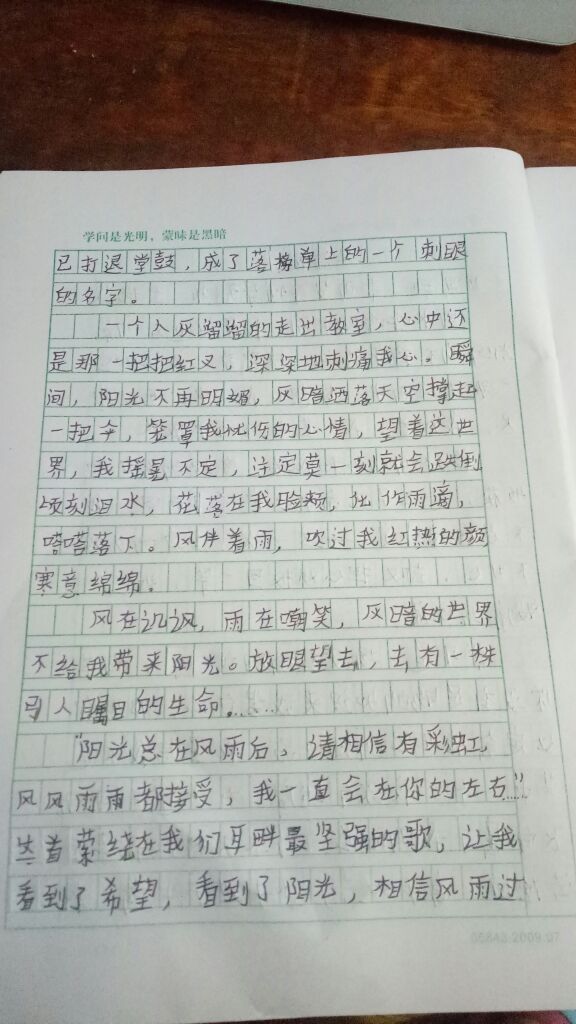 学问是光明，蒙昧是黑暗
已打退堂鼓，成了落榜单上的一个刺眼
的名字。
一个人灰溜溜的走出教室，心中还
是那一把把红叉，深深地刺痛我心。瞬
间，阳光不再明媚，灰暗洒落天空撑起
一把伞，笼罩我忧伤的心情，望着这世
界，我摇晃不定，注定莫一刻就会跌倒
顷刻泪水，花落在我脸颊，化作雨滴，
嗒嗒落下。风伴着雨，吹过我红热的颜
寒意绵绵。
风在讥讽，雨在嘲笑，灰暗的世界
不给我带来阳光。放眼望去，去有一株
引人瞩目的生命……
"阳光总在风雨后，请相信有彩虹，
风风雨雨都接受，我一直会在你的左右……"
首萦绕在我们耳畔最坚强的歌，让我
看到了希望，看到了阳光，相信风雨过
05843·2009.07